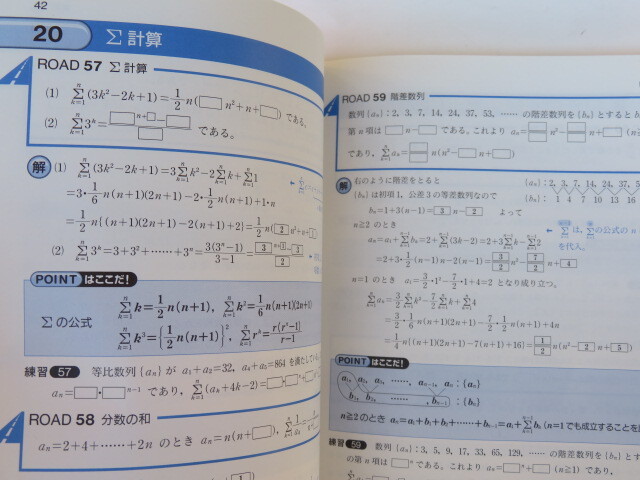 42
20 Σ計算
ROAD 57 Σ計算
(1) Σ[k=1→n](3k²−2k+1)=1/2 n(□n²+n+□)である。
(2) Σ[k=1→n]3ᵏ=(□ⁿ⁺□−□)/□ である。
解 (1) Σ[k=1→n](3k²−2k+1)=3Σ[k=1→n]k²−2Σ[k=1→n]k+Σ[k=1→n]1
=3・1/6 n(n+1)(2n+1)−2・1/2 n(n+1)+1・n
=1/2 n{(n+1)(2n+1)−2(n+1)+2}=1/2 n(2 n²+n+
(2) Σ[k=1→n]3ᵏ=3+3²+……+3ⁿ=3(3ⁿ−1)/(3−1)=(3ⁿ⁺¹−3)/2
POINT はここだ!
Σ[k=1→n]k=1/2 n(n+1), Σ[k=1→n]k²=1/6 n(n+1)(2n+1)
Σの公式
Σ[k=1→n]k³={1/2 n(n+1)}², Σ[k=1→n]rᵏ=r(rⁿ−1)/(r−1)
練習 57 等比数列{aₙ}が a₁+a₂=32, a₄+a₅=864 を満たして
aₙ=□・□ⁿ⁻¹ であり, Σ[k=1→n](aₖ+4k−2)=□・□ⁿ+
ROAD 58 分数の和
aₙ=2+4+……+2n のとき aₙ=n(n+□), Σ[k=1→n]1/aₖ=
ROAD 59 階差数列
数列{aₙ}:2, 3, 7, 14, 24, 37, 53, …… の階差数列を{bₙ}とすると b
第n項は□n−□である。これより aₙ=□/□n²−□/□n+□(n≧
であり, Σ[k=1→n]aₖ=□/□n(n²−□n+□)
解 右のように階差をとると {aₙ}:2, 3, 7, 14, 24, 37, 5
{bₙ}は初項1, 公差3の等差数列なので {bₙ}: 1 4 7 10 13 16
bₙ=1+3(n−1)=3 n−2 よって
n≧2のとき
aₙ=a₁+Σ[k=1→n−1]bₖ=2+Σ[k=1→n−1](3k−2)=2+3Σ[k=1→n−1]k−Σ[k=1→n−1]2
は, Σ[k=1→n]の公式の n
を代入。
=2+3・1/2(n−1)n−2(n−1)=3/2 n²−7/2 n+4
n=1のとき a₁=3/2・1²−7/2・1+4=2 となり成り立つ。
Σ[k=1→n]aₖ=3/2Σ[k=1→n]k²−7/2Σ[k=1→n]k+Σ[k=1→n]4
=3/2・1/6 n(n+1)(2n+1)−7/2・1/2 n(n+1)+4n
=1/4 n{(n+1)(2n+1)−7(n+1)+16}=1/2 n(n²−2 n+5)
POINT はここだ!
a₁, a₂, a₃, ……, aₙ₋₁, aₙ :{aₙ}
b₁, b₂, ……, bₙ₋₁ :{bₙ}
n≧2のとき aₙ=a₁+b₁+b₂+……+bₙ₋₁=a₁+Σ[k=1→n−1]bₖ(n=1でも成立することを
練習 59 数列{aₙ}:3, 5, 9, 17, 33, 65, 129, …… の階差数列を{bₙ}と
の第n項は□ⁿである。これより aₙ=□ⁿ+□(n≧1)であり,